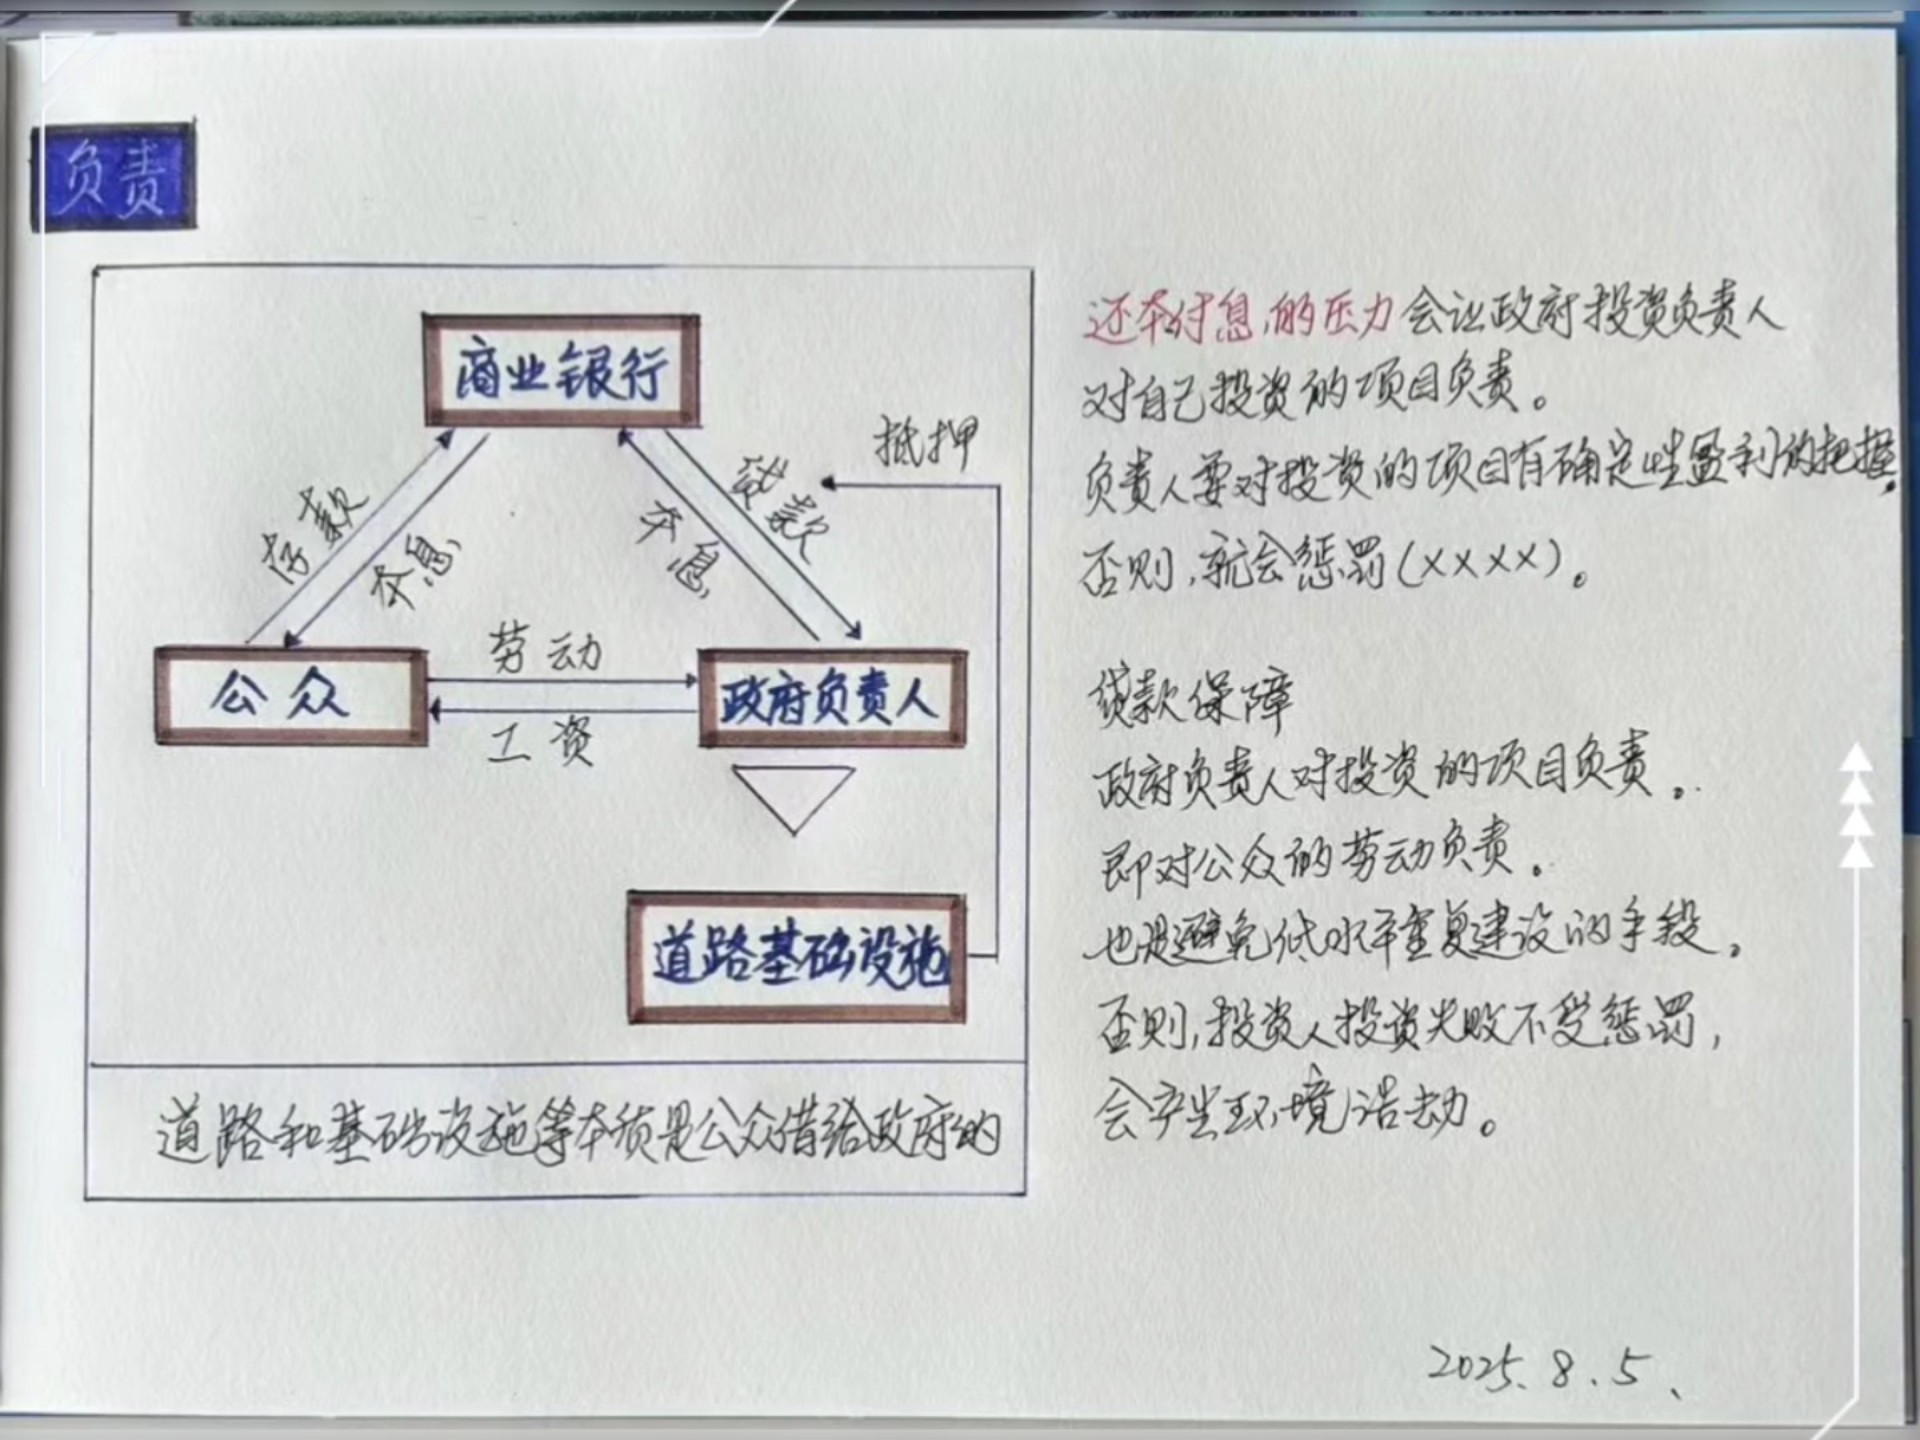 负责
商业银行
抵押
贷款
本息
存款
本息
劳动
公众
政府负责人
工资
道路基础设施
道路和基础设施等本质是公众借给政府的
还本付息的压力会让政府投资负责人
对自己投资的项目负责。
负责人要对投资的项目有确定性盈利的把握,
否则,就会惩罚(××××)。
贷款保障
政府负责人对投资的项目负责。
即对公众的劳动负责。
也是避免低水平重复建设的手段。
否则,投资人投资失败不受惩罚,
会产生环境浩劫。
2025.8.5、